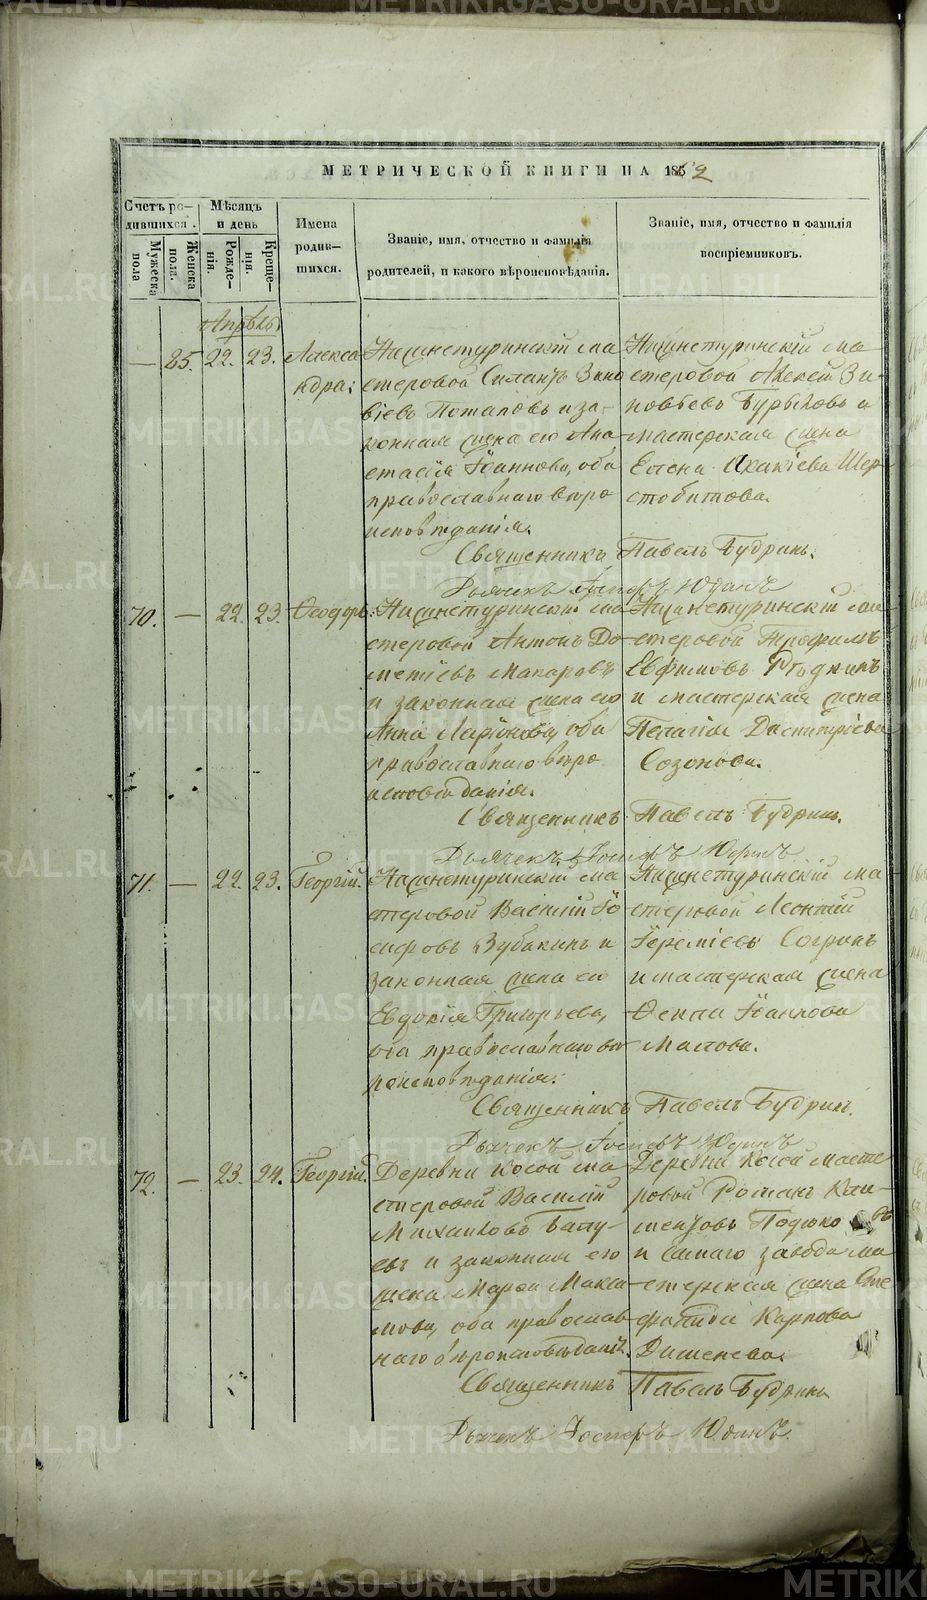 МЕТРИЧЕСКОЙ КНИГИ НА 1862
Счетъ ро-
дившихся.
Мужеска
пола
Женска
пола.
Мѣсяцъ
и день
Рожде-
нія.
Креще-
нія.
Имена
родив-
шихся.
Званіе, имя, отчество и фамилія
родителей, и какого вѣроисповѣданія.
Званіе, имя, отчество и фамилія
воспріемниковъ.
Апрѣль
— 85. 22. 23.
Алекса
ндра;
Нижнетуринскій ма
стеровой Силантъ Зино
віевъ Потаповъ и за-
конная жена его Ана
стасія Іоаннова, оба
православнаго вѣро
исповѣданія.
Нижнетуринскій ма
стеровой Алексей Зи-
новьевъ Бурыховъ и
мастерская жена
Елена Акакіева Шер
стобитова.
Священникъ Павелъ Будринъ.
Дьячекъ Іосифъ Юдинъ
70. — 22. 23. Ѳеодоръ.
Нижнетуринскій ма
стеровой Антонъ До
метіевъ Макаровъ
и законная жена его
Анна Ларіонова, оба
православнаго вѣро
исповѣданія.
Нижнетуринскій ма
стеровой Трофимъ
Евфимовъ
и мастерская жена
Пелагія Димитріева
Созонова.
Священникъ Павелъ Будринъ.
Дьячекъ Іосифъ Юдинъ
71. — 22. 23. Георгій.
Нижнетуринскій ма
стеровой Василій Іо
сифовъ Зубакинъ и
законная жена его
Евдокія Григорьева,
оба православнаго вѣ
роисповѣданія.
Нижнетуринскій ма
стеровой Леонтій
Іереміевъ Согринъ
и мастерская жена
Ѳекла Іоаннова
Маслова.
Священникъ Павелъ Будринъ.
Дьячекъ Іосифъ Юдинъ
72. — 23. 24. Георгій.
Деревни Косой ма
стеровой Василій
Михаиловъ Бату-
евъ и законная его
жена Марѳа Макси
мова, оба православ
наго вѣроисповѣданія.
Деревни Косой масте
ровой Романъ Кли-
ментовъ
и самаго завода ма
стерская жена Сте
фанида Карпова
Дишенева.
Священникъ Павелъ Будринъ
Дьячекъ Іосифъ Юдинъ.
METRIKI.GASO-URAL.RU